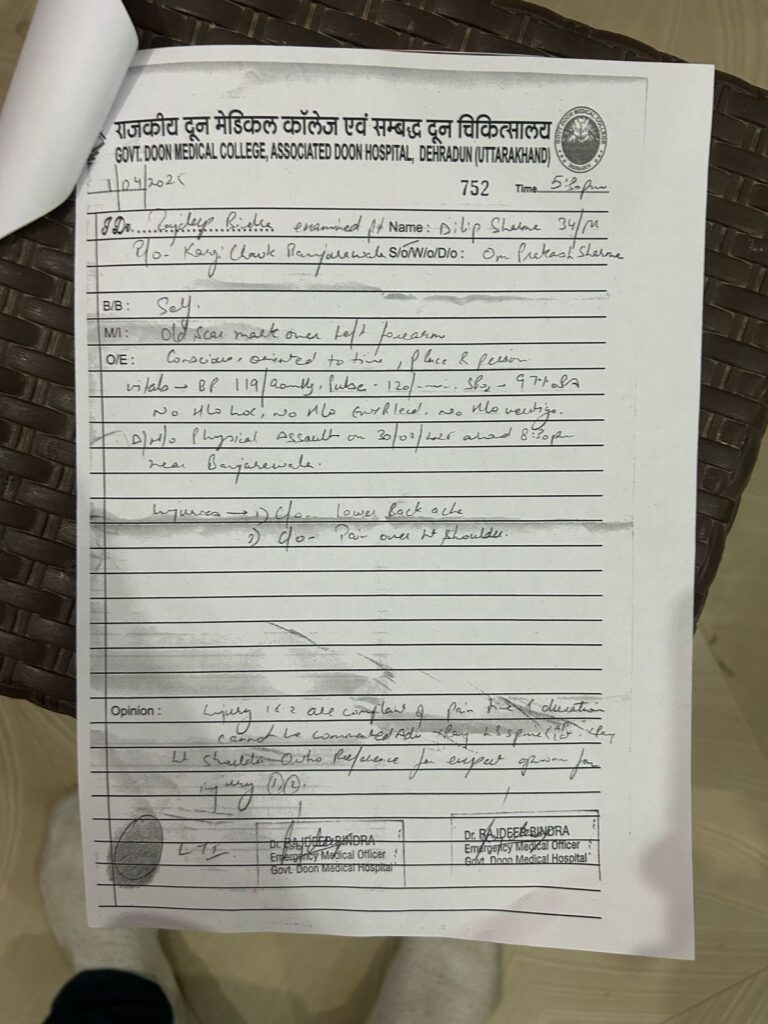 राजकीय दून मेडिकल कॉलेज एवं सम्बद्ध दून चिकित्सालय
GOVT. DOON MEDICAL COLLEGE, ASSOCIATED DOON HOSPITAL, DEHRADUN (UTTARAKHAND)
1/04/202 752 Time 5:30pm
I Dr. Rajdeep Bindra examined pt Name : Dilip Sharma 34/M
R/o- Kargi Chowk Banjarewala S/o/W/o/D/o : Om Prakash Sharma
B/B : Self.
M/I : Old Scar mark over left forearm
O/E : Conscious, oriented to time, place & person
vitals → BP 119/ mmHg, Pulse - 120/min. SpO2 - 97%
No H/o LOC, No H/o ENT Bleed. No H/o vertigo.
A/H/o Physical Assault on 30/03/202 around 8:30pm
near Banjarewala.
Injuries → 1) C/o- Lower Back ache
2) C/o- Pain over Lt shoulder.
Opinion : Injury 1 & 2 are complaint of pain time & duration
cannot be commented Adv Xray LS spine AP Xray
Lt Shoulder Ortho Reference for expert opinion for
injury (1)(2).
LTI.
Dr. RAJDEEP BINDRA
Emergency Medical Officer
Govt. Doon Medical Hospital
Dr. RAJDEEP BINDRA
Emergency Medical Officer
Govt. Doon Medical Hospital